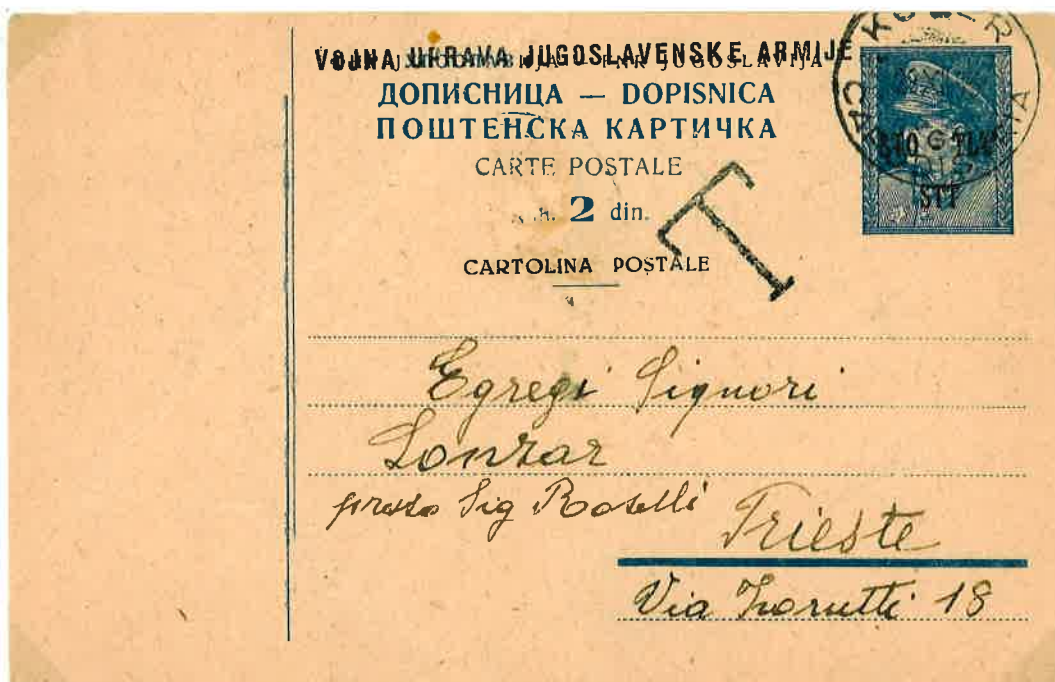 VOJNA UPRAVA JUGOSLAVENSKE ARMIJE
ДОПИСНИЦА — DOPISNICA
ПОШТЕНСКА КАРТИЧКА
CARTE POSTALE
2 din.
CARTOLINA POSTALE
T
STO TLT
STT
Egregi Signori
Lonzar
presso Sig Roselli
Trieste
Via Zorutti 18